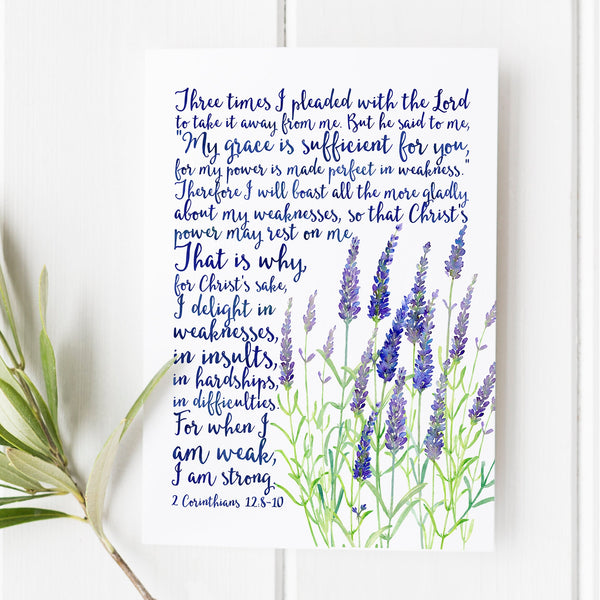 Three times I pleaded with the Lord
to take it away from me. But he said to me,
"My grace is sufficient for you,
for my power is made perfect in weakness."
Therefore I will boast all the more gladly
about my weaknesses, so that Christ's
power may rest on me.
That is why,
for Christ's sake,
I delight in
weaknesses,
in insults,
in hardships,
in difficulties.
For when I
am weak,
I am strong.
2 Corinthians 12:8-10